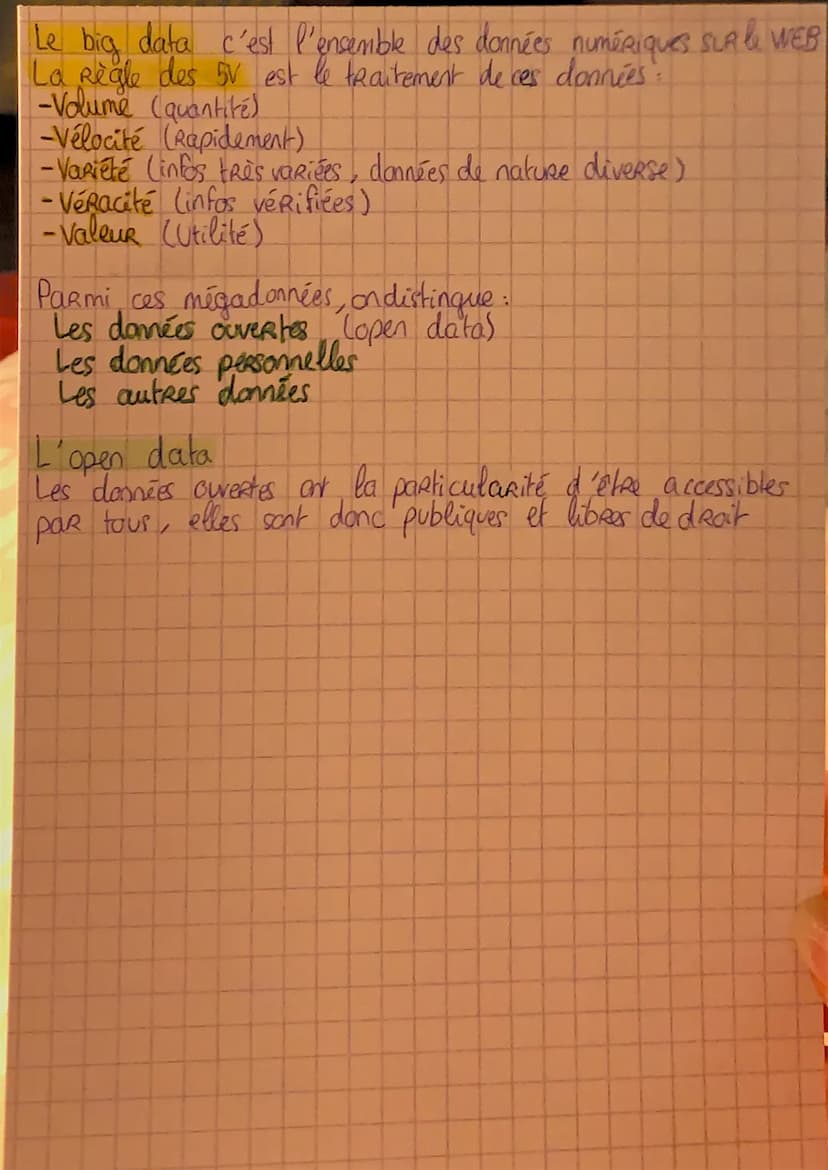 Le big data c'est l'ensemble des données numériques sur le WEB
La Règle des 5V est le traitement de ces données :
-Volume (quantité)
-Vélocité (Rapidement)
-Variété (infos très variées, données de nature diverse)
-Véracité (infos vérifiées)
-Valeur (Utilité)
Parmi ces mégadonnées, on distingue :
Les données ouvertes (open data)
Les données personnelles
Les autres données
L'open data
Les données ouvertes ont la particularité d'être accessibles
par tous, elles sont donc publiques et libres de droit